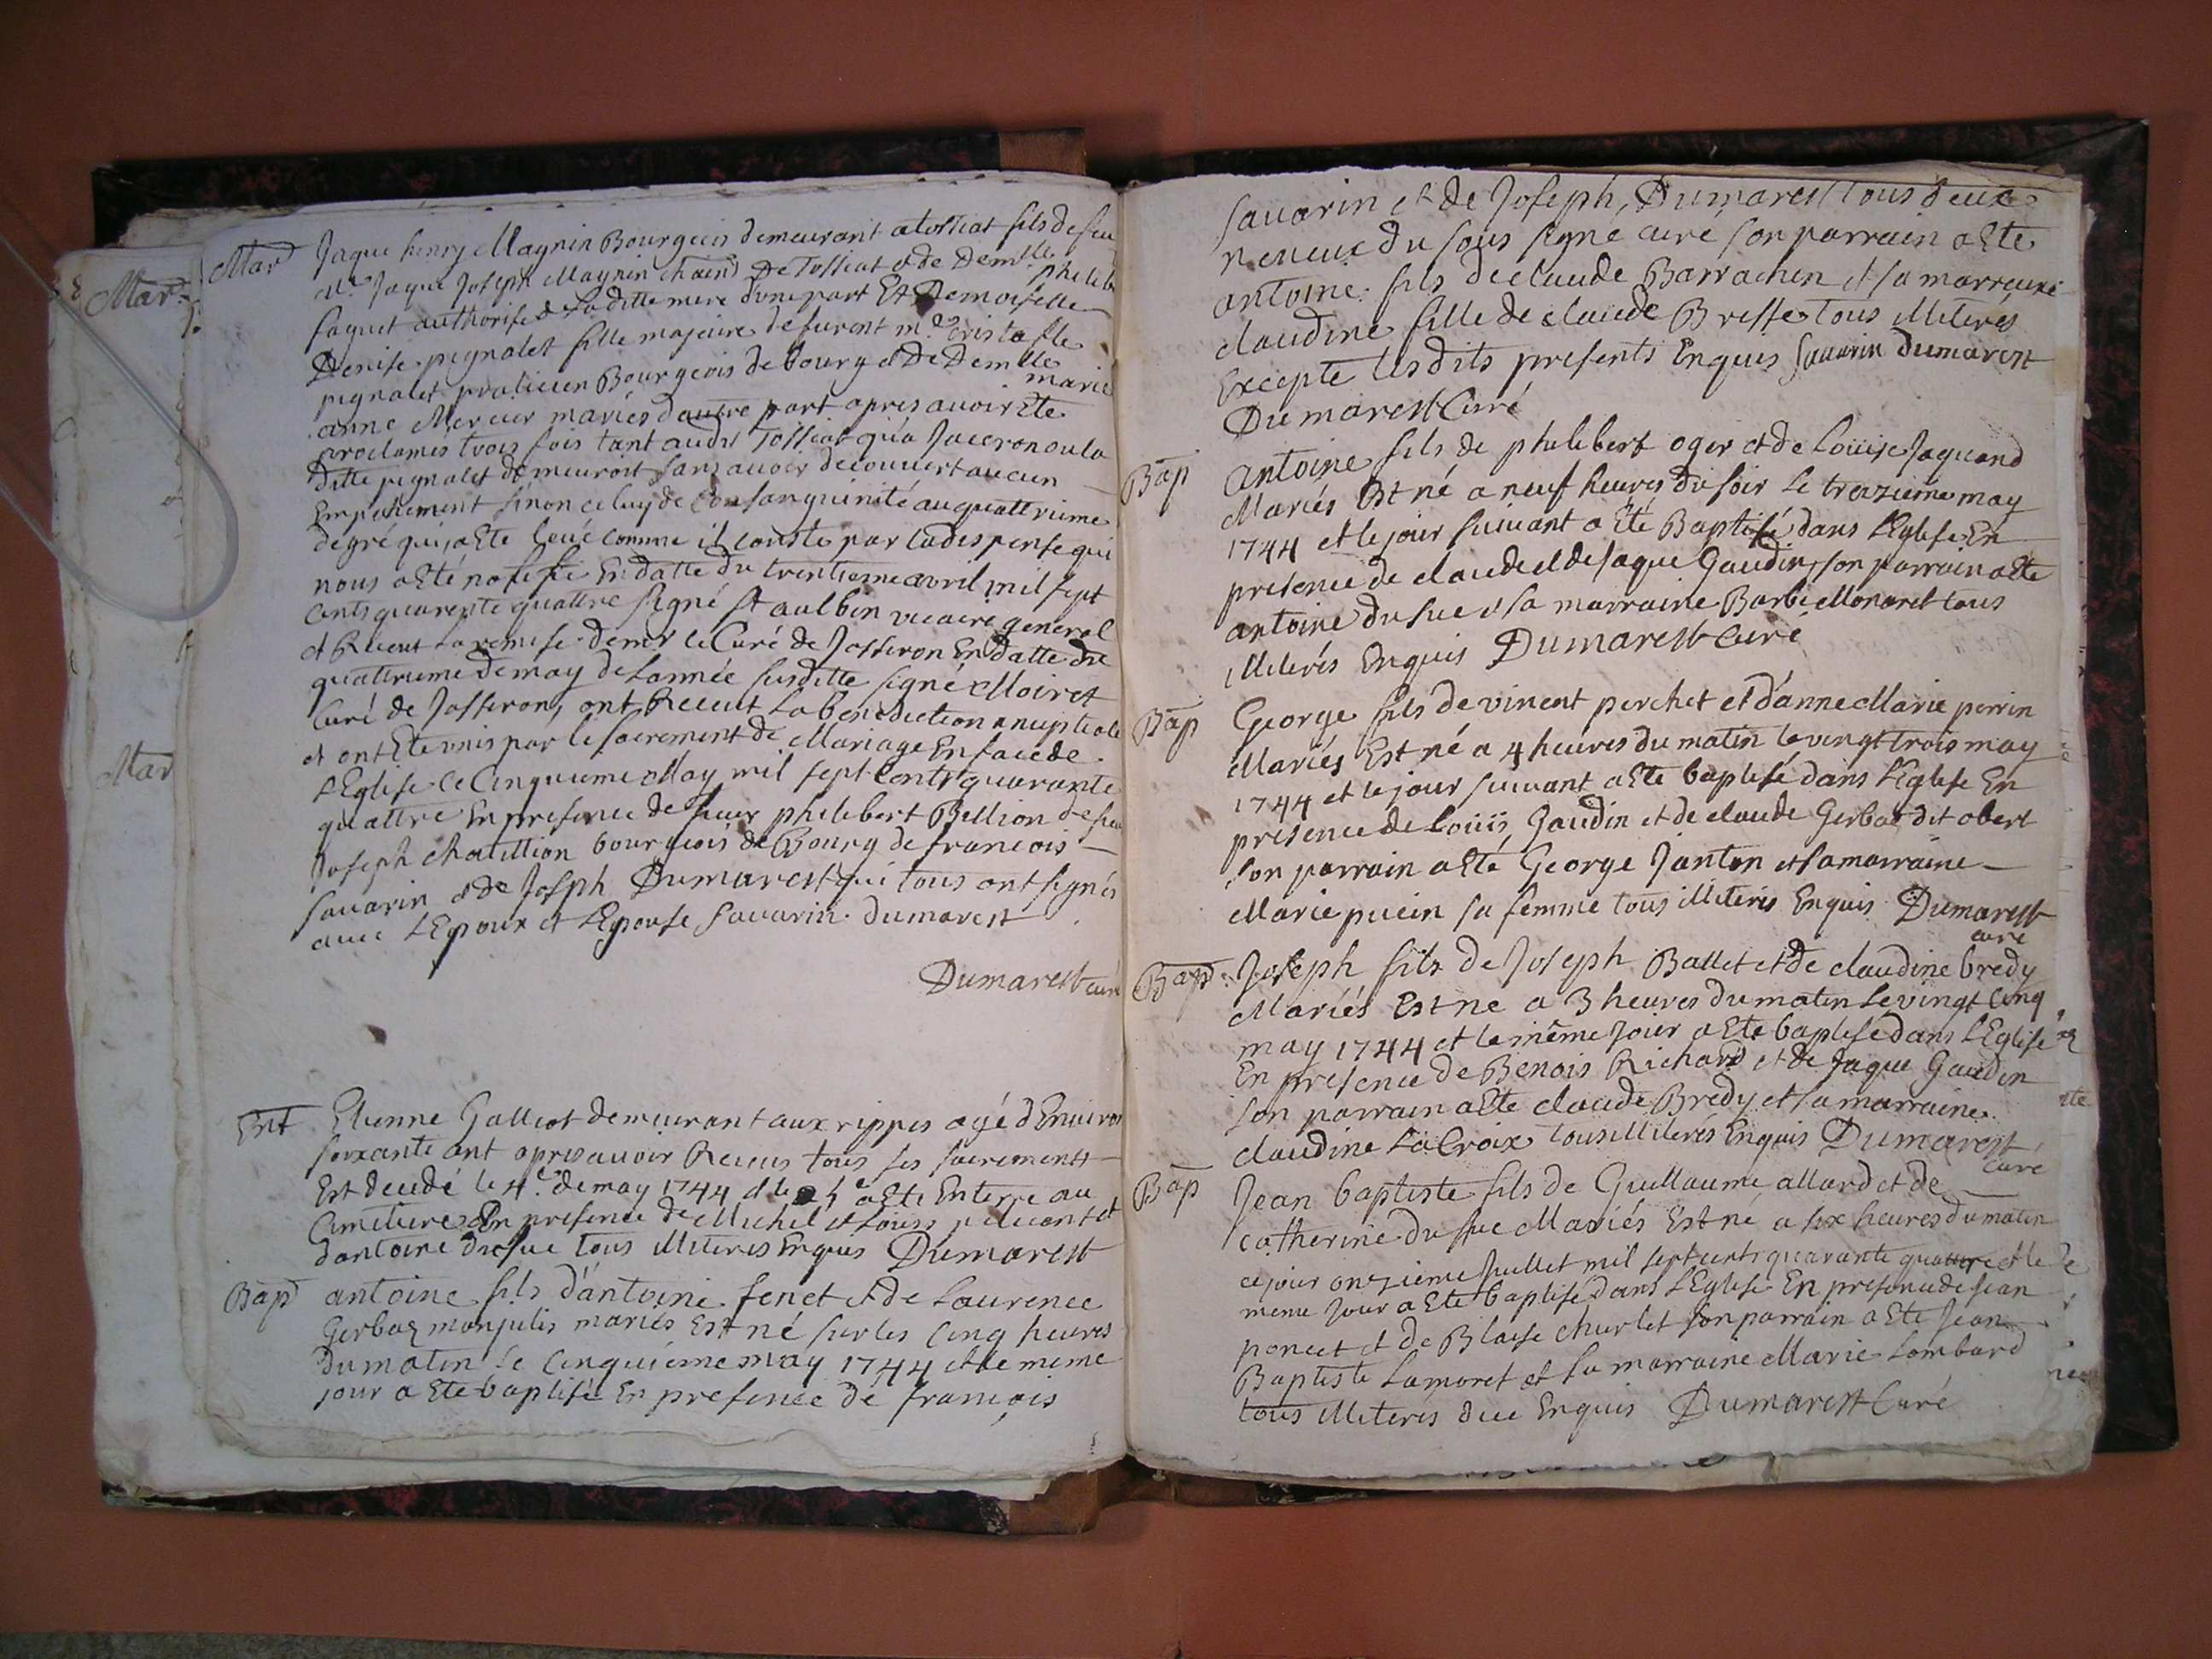 Mar
Mar
Mar Jaque henry Magnin Bourgeois demeurant a tossiat fils de feu
Mr Jaque Joseph Magnin De Tossiat et de Demlle phileb
faguet authorisé de laditte mere d'une part Et Demoiselle
Denise pignalet fille majeure defunt mre cristofle
pignalet praticien Bourgeois de bourg et De Demlle marie
anne Mercier mariés dautre part apres avoir Ete
proclamés trois fois tant audit Tossiat qu'a Jasseron ou la
ditte pignalet demeuroit sans avoir decouvert aucun
Empechement sinon celuy de Consanguinité au quattrieme
degré qui a Ete levé comme il conste par la dispense qui
nous a Eté notifiée En datte du trentieme avril mil sept
cents quarente quattre signé St aulbin vicaire general
et Receut la remise de mr le Curé de Josseron En datte du
quattrieme de may de l'année susditte signé Moiret
Curé de Josseron, ont Receut La benediction nuptiale
et ont Ete unis par le sacrement de Mariage En face de
L'Eglise le Cinquieme May mil sept Cents quarante
quattre En presence de sieur philibert Bellion de sieur
Joseph chatillion bourgeois de Bourg de francois
savarin et de Josph Dumarest qui tous ont signés
avec L'Epoux et L'Epouse savarin. dumarest
Dumarest curé
Ent Etienne Galliot demeurant aux rippes agé d'Environ
soixante ant apres avoir Receus tous ses sacrements
Est decedé le 4e de may 1744 et le 5e a Eté Enterre au
Cimetiere En presence de Michel et Louis et
dantoine dusuc tous illiterés Enquis Dumarest
Bap antoine fils d'antoine fenet et de Laurence
Gerbaz monjulis mariés Est né sur les Cinq heures
du matin le Cinquieme may 1744 et le meme
jour a Ete baptisé En presence de françois
savarin et de Joseph, Dumarest tous deux
neveux du sous signé curé, son parrain a Ete
antoine fils de claude Barrachin et sa marraine
claudine fille de claude Bresse tous illiterés
Excepte lesdits presents Enquis Savarin dumarest
Dumarest Curé
Bap antoine fils de philibert oger et de Loüise Jaquand
Mariés Est né a neuf heures du soir Le treizieme may
1744 et le jour suivant a Eté Baptisé dans L'Eglise En
presence de claude et de Jaque Gaudin, son parrain a Ete
antoine du suc et sa marraine Barbe Monaret tous
illiterés Enquis Dumarest Curé
Bap George fils de vincent perchet et d'anne Marie perrin
Mariés Est né a 4 heures du matin le vingt trois may
1744 et le jour suivant a Ete baptisé dans L'Eglise En
presence de Loüis Gaudin et de claude Gerbaz dit obert
son parrain a Eté George Janton et sa marraine
Marie puein sa femme tous illiterés Enquis Dumarest
curé
Bap. Joseph fils de Joseph Ballet et de claudine bredy
Mariés Est ne a 3 heures du matin Le vingt Cinq
may 1744 et le même Jour a Ete baptisé dans L'Eglise
En presence de Benois Richard et de Jaque Gaudin
son parrain a Ete claude Bredy et sa marraine
claudine La Croix tous illiterés Enquis Dumarest
curé
Bap Jean baptiste fils de Guillaume allard et de
catherine du suc Mariés Est né a six heures du matin
ce jour onzieme Juillet mil sept cents quarante quattre et le
meme jour a Ete baptisé dans L'Eglise En presence de Jean
poncet et de Blaise churlet son parrain a Ete Jean
Baptiste Lamoret et sa marraine Marie Lombard
tous illiterés due Enquis Dumarest Curé